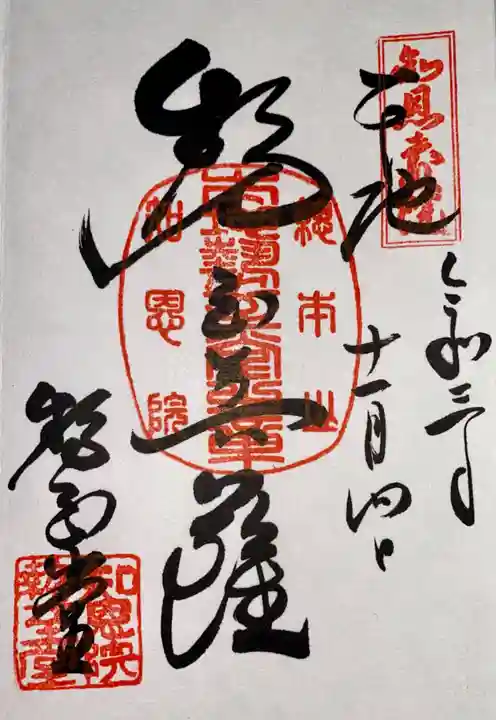 本地
令和三年
十一月四日
勢至菩薩
總本山
知恩院
勢至堂
知恩院
勢至堂